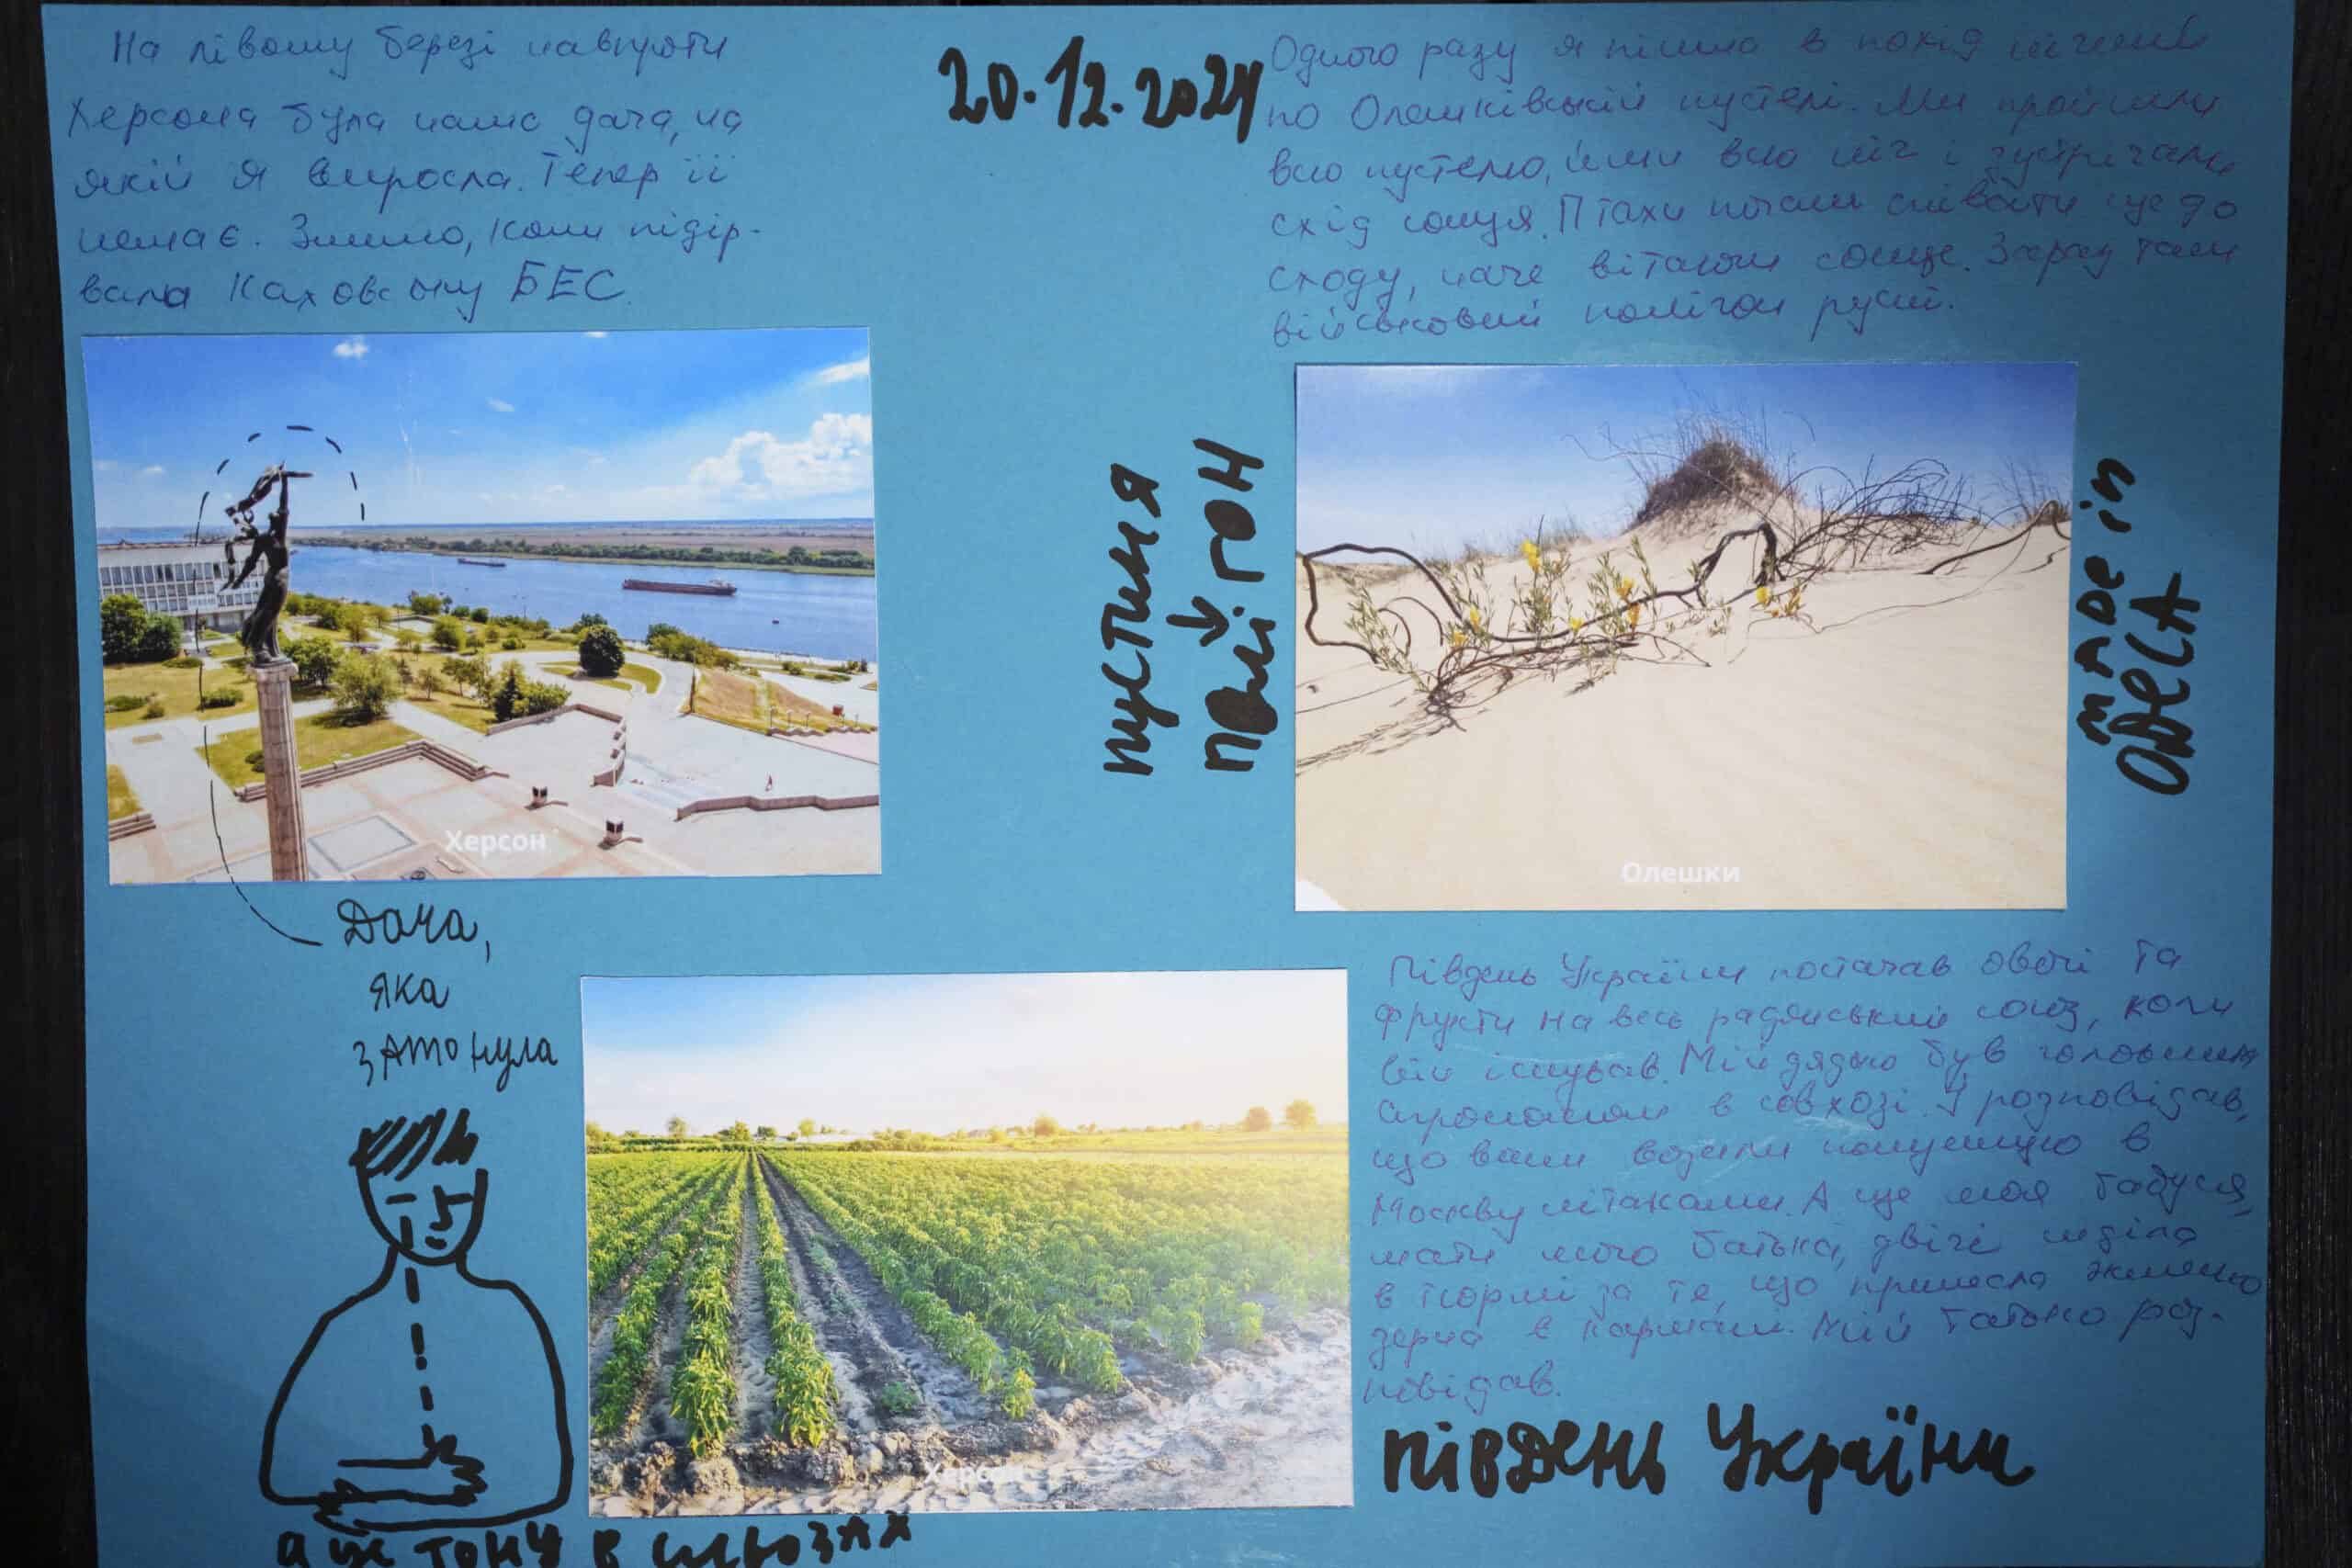 На лівому березі навпроти
Херсона була наша дача, на
якій я виросла. Тепер її
немає. Змило, коли підір-
вала Каховську БЕС.
20.12.2024
Одного разу я пішла в похід нічний
по Олешківській пустелі. Ми пройшли
всю пустелю, йшли всю ніч і зустрічали
схід сонця. Птахи почали співати ще до
сходу, наче вітаючи сонце. Зараз там
військовий полігон русні.
Херсон
пустиня
↓
полігон
Олешки
маDe in
ODECA
Дача,
яка
затонула
Південь України постачав овочі та
фрукти на весь радянський союз, коли
він існував. Мій дядько був головним
агрономом в совхозі. І розповідав,
що вони возили полуницю в
Москву літаками. А ще моя бабуся,
мати мого батька, двічі сиділа
в тюрмі за те, що принесла жменьку
зерна в кармані. Мій батько роз-
повідав.
Херсон
південь України
а я тону в сльозах